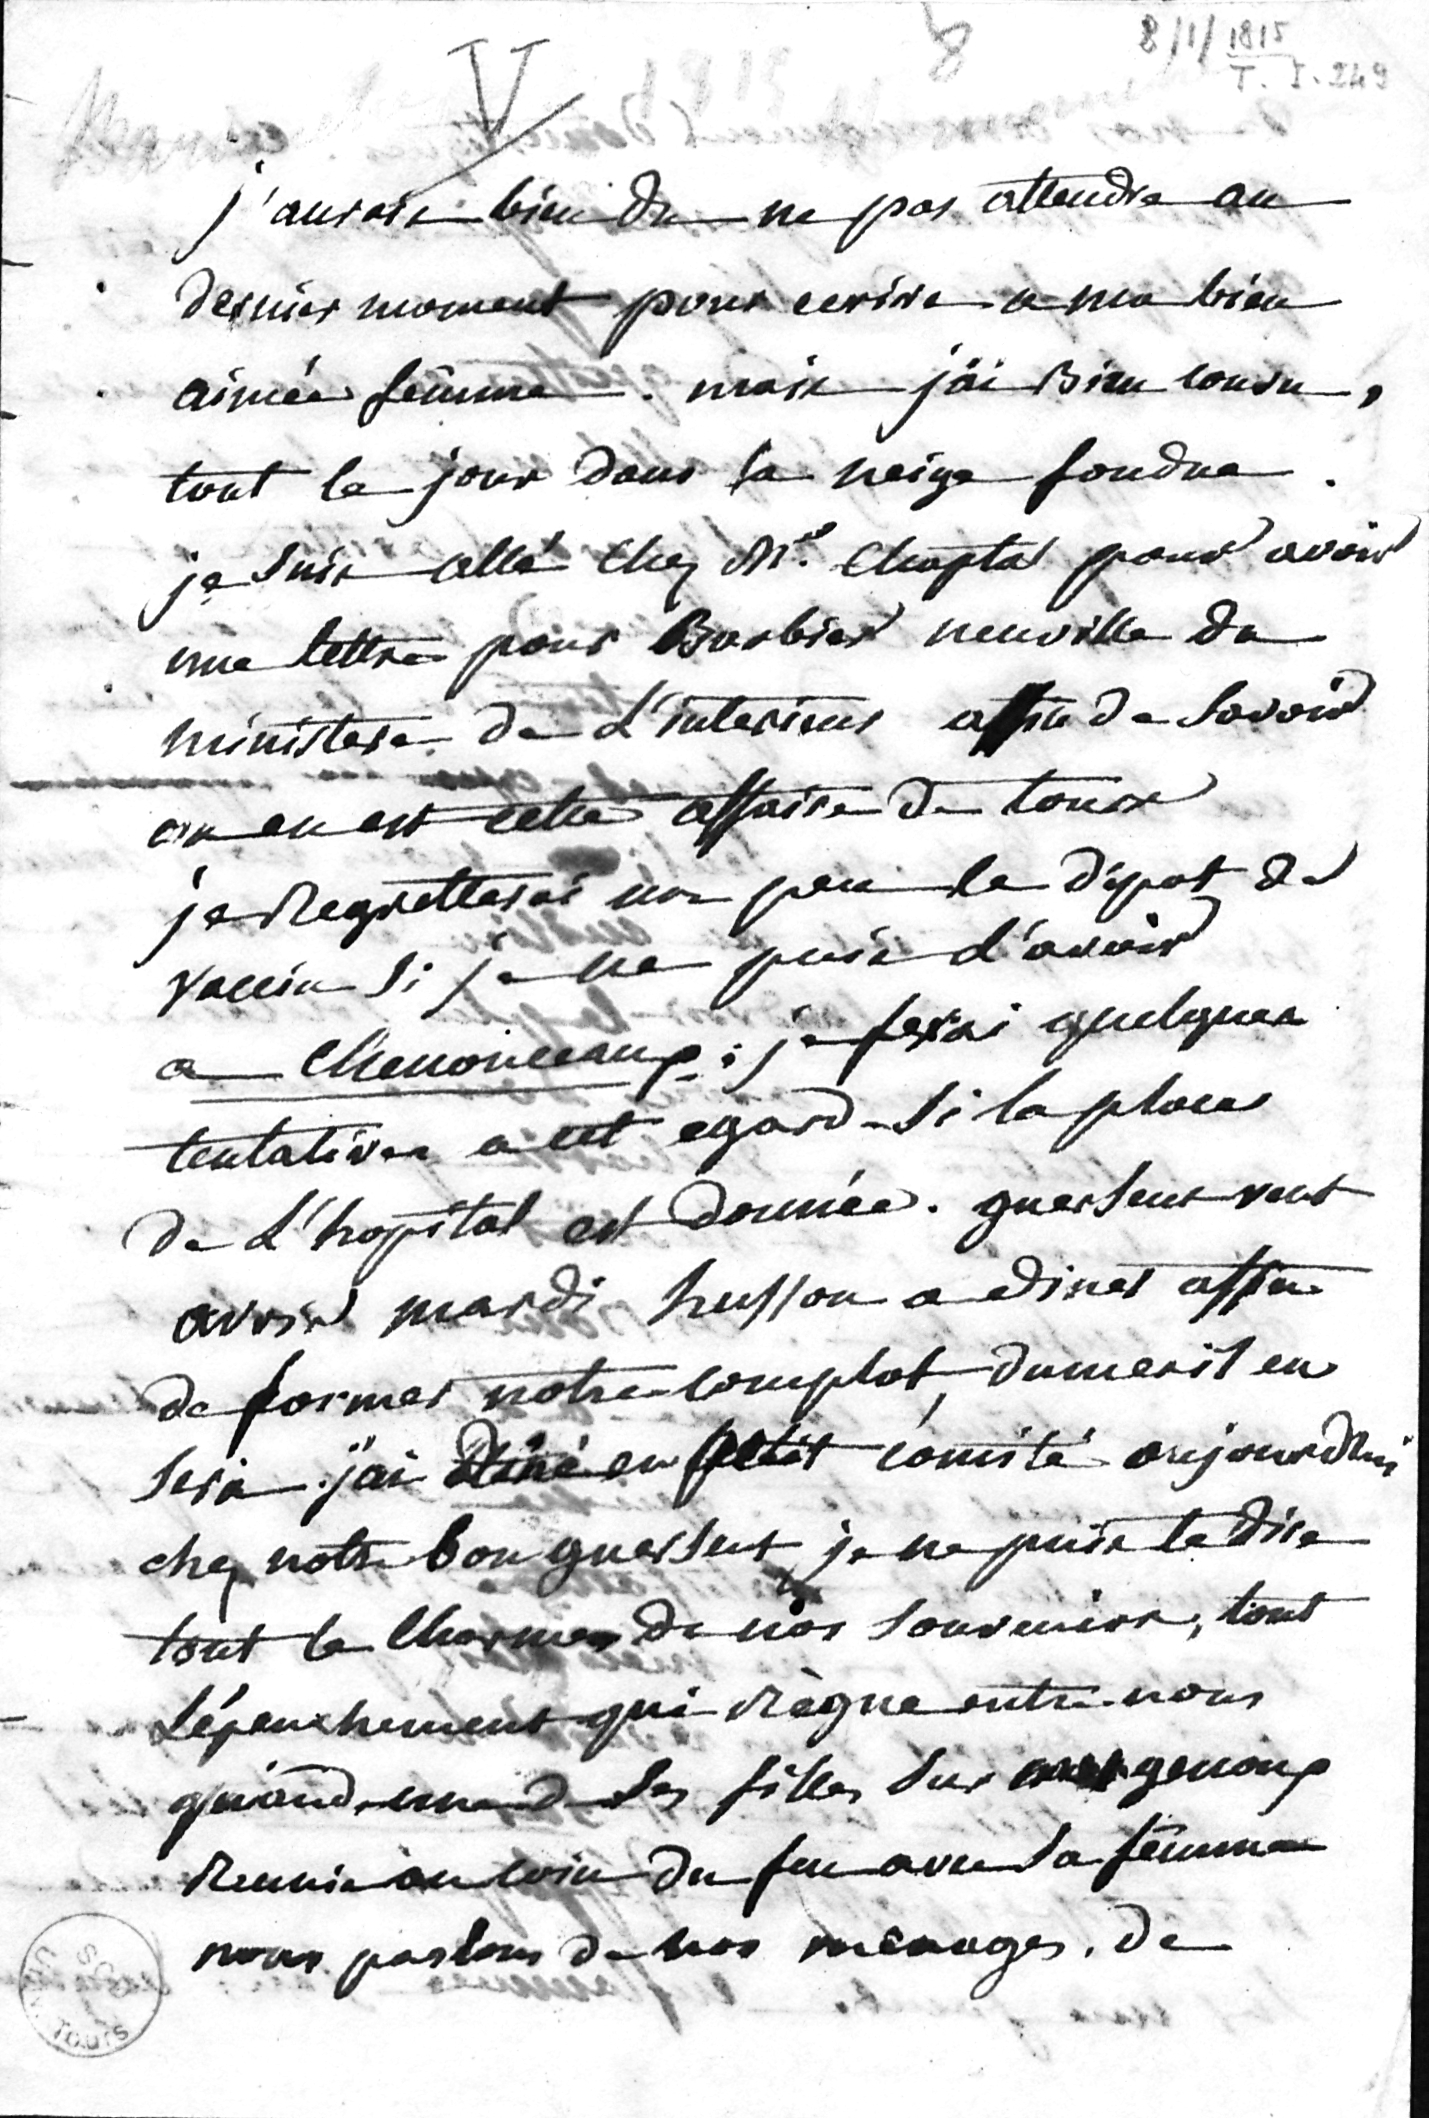 8
8/1/1815
T. I. 249
V
j'aurais bien du ne pas attendre au
dernier moment pour ecrire a ma bien
aimée femme. mais j'ai Bien couru,
tout le jour dans la neige fondue.
je suis allé chez Mr. Chaptal pour avoir
une lettre pour Barbier neuville du
ministere de L'interieur affin de Savoir
ou en est cette affaire de tours
je Regretterai un peu le dépot de
vaccin si je ne puis l'avoir
a Chenonceaux; je ferai quelques
tentatives a cet egard si la place
de L'hopital est donnée. guersent veut
avoir mardi husson a diner affin
de former notre complot, dumeril en
sera. j'ai diné en petit comité aujourdhui
chez notre bon guersent je ne puis te dire
tout le charme de nos souvenirs, tout
L'épenchement qui Règne entre nous
quand une de ses filles sur mes genoux
Reunis au coin du feu avec sa femme
nous parlons de nos ménages. de
SCD
UNIV. TOURS